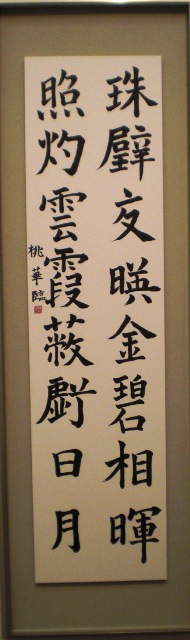 珠璧交暎金碧相暉
照灼雲霞蔽虧日月
桃華臨